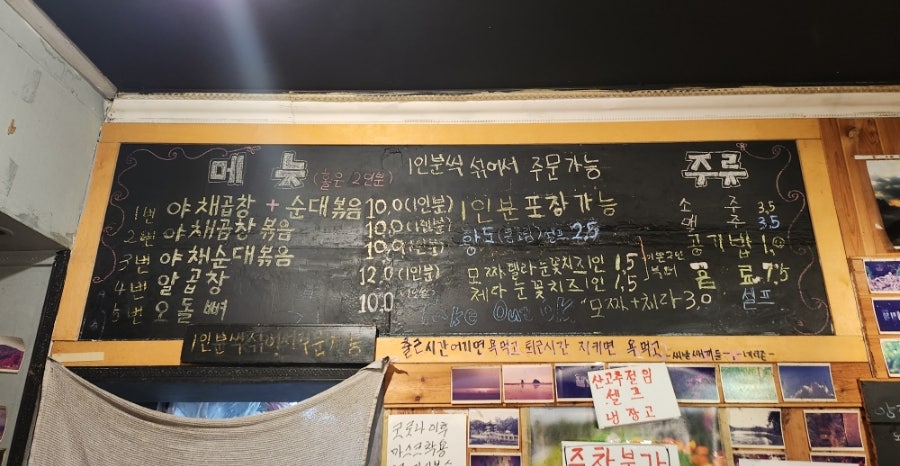 메 늇 (홀은 2인분)
1인분씩 섞어서 주문가능
주류
1번 야채곱창 + 순대볶음 10.0 (1인분)
2번 야채곱창볶음 10.0 (1인분)
3번 야채순대볶음 10.0 (1인분)
4번 알곱창 12.0 (1인분)
5번 오돌뼈 10.0
1인분포장가능
2.5
모짜렐라눈꽃치즈1인 1.5
체다눈꽃치즈1인 1.5
모짜+체다 3.0
Take Out OK
소 주 3.5
맥 주 3.5
공기밥 1.0
음 료 1.5
셀프
1인분씩섞어서주문가능
출근시간어기면 욕먹고 퇴근시간 지키면 욕먹고
산고추절임
셀프
냉장고
주차불가